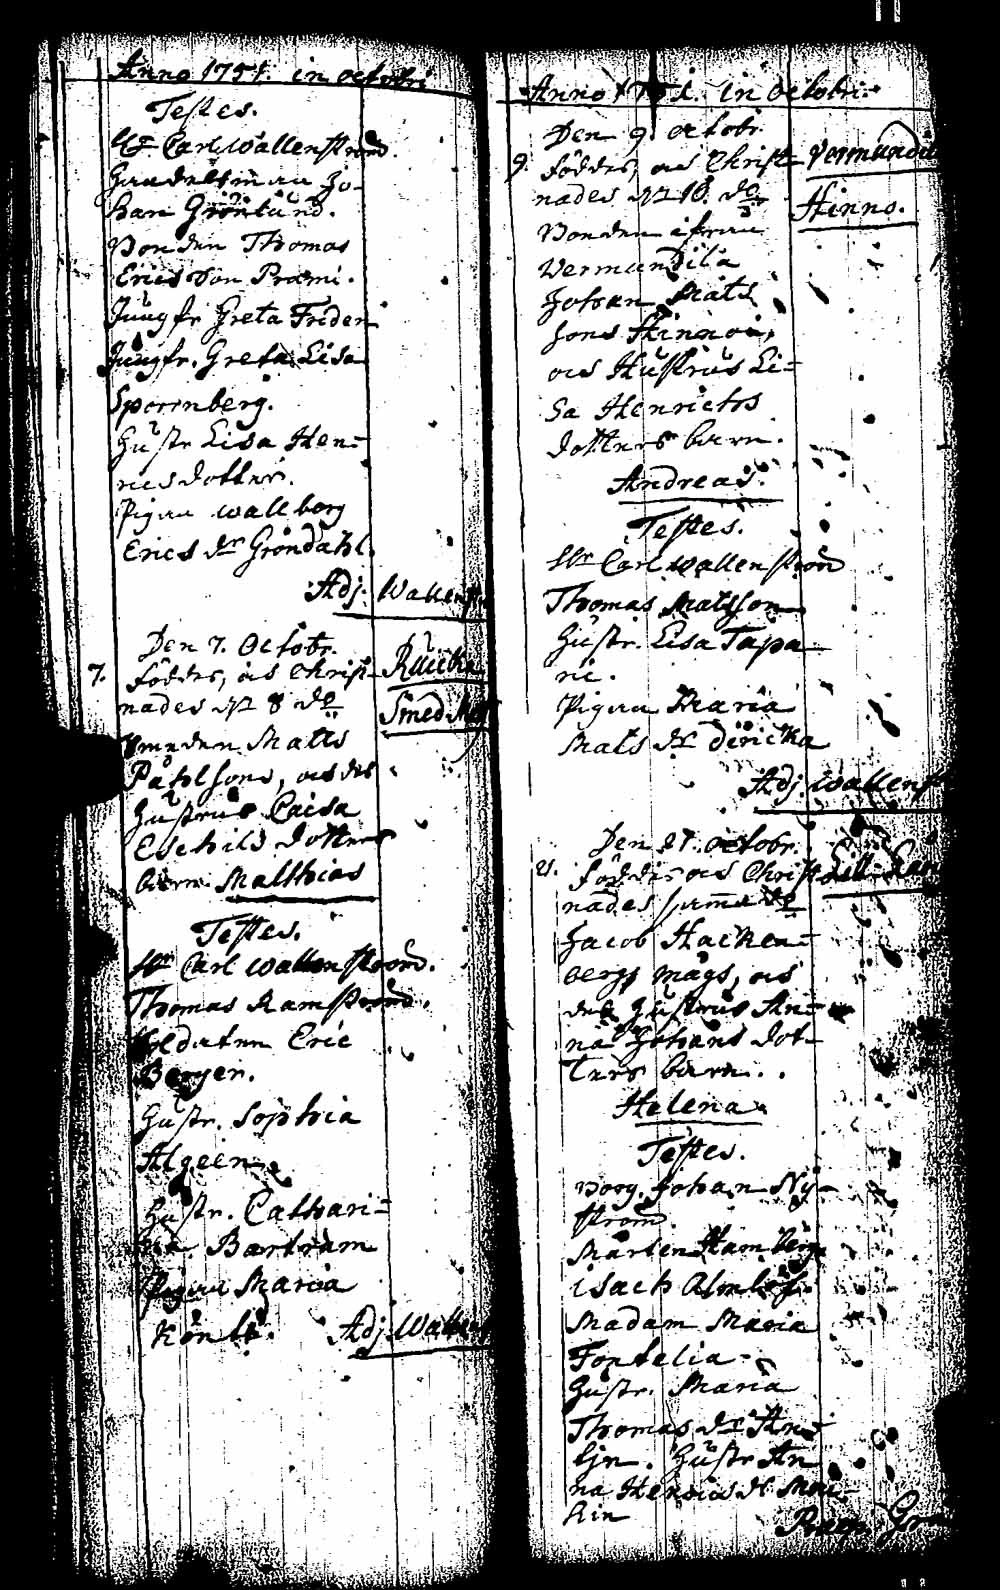 Anno 1751. in octobri
Testes.
Hr Carl Wallenström.
Handelsman Jo-
han Grönlund.
Bonden Thomas
Ericsson Prami.
Jungfr Greta Friden
Jungfr. Greta Lisa
Sporrnberg.
Hustr Lisa Hen-
ricsdotter.
Pigan Wallborg
Erics dr Gröndahl.
Adj. Wallenst
Den 7. Octobr.
7. föddes, och Christ-
nades d 8 do
Smeden Matts
Påhlsons, och des
Hustrus Caisa
Eschilsdotters
barn. Matthias
Smed
Testes.
Hr Carl Wallenström.
Thomas Ramström.
Soldaten Eric
Berger.
Hustr. Sophia
Algeen.
Hustr. Cathari-
na Bartram
Pigan Maria
Adj. Wallens
Anno 1751. in Octobri.
Den 9. octobr.
9. föddes, och Christ-
nades d 10. do
Bonden ifrån
Vermundila
Johan Mats
sons Hinnoi,
och Hustrus Li-
sa Henrichs
dotters barn.
Andreas.
Vermundila
Hinno.
Testes.
Hr Carl Wallenström
Thomas Matsson
Hustr. Lisa Tapa-
ric.
Pigan Maria
Mats dr
Adj. Wallenst
Den 21. octobr.
föddes och Christ-
nades samma do
Jacob Hacken-
bergs mågs, och
des Hustrus An-
na Johans dot-
ters barn.
Helena
Testes.
Borg. Johan Ny-
ström.
Mårten Hamberg
Isach Almlöf.
Madam Maria
Fortelia.
Hustr. Maria
Thomas dr
Hustr An
na Henrics dr